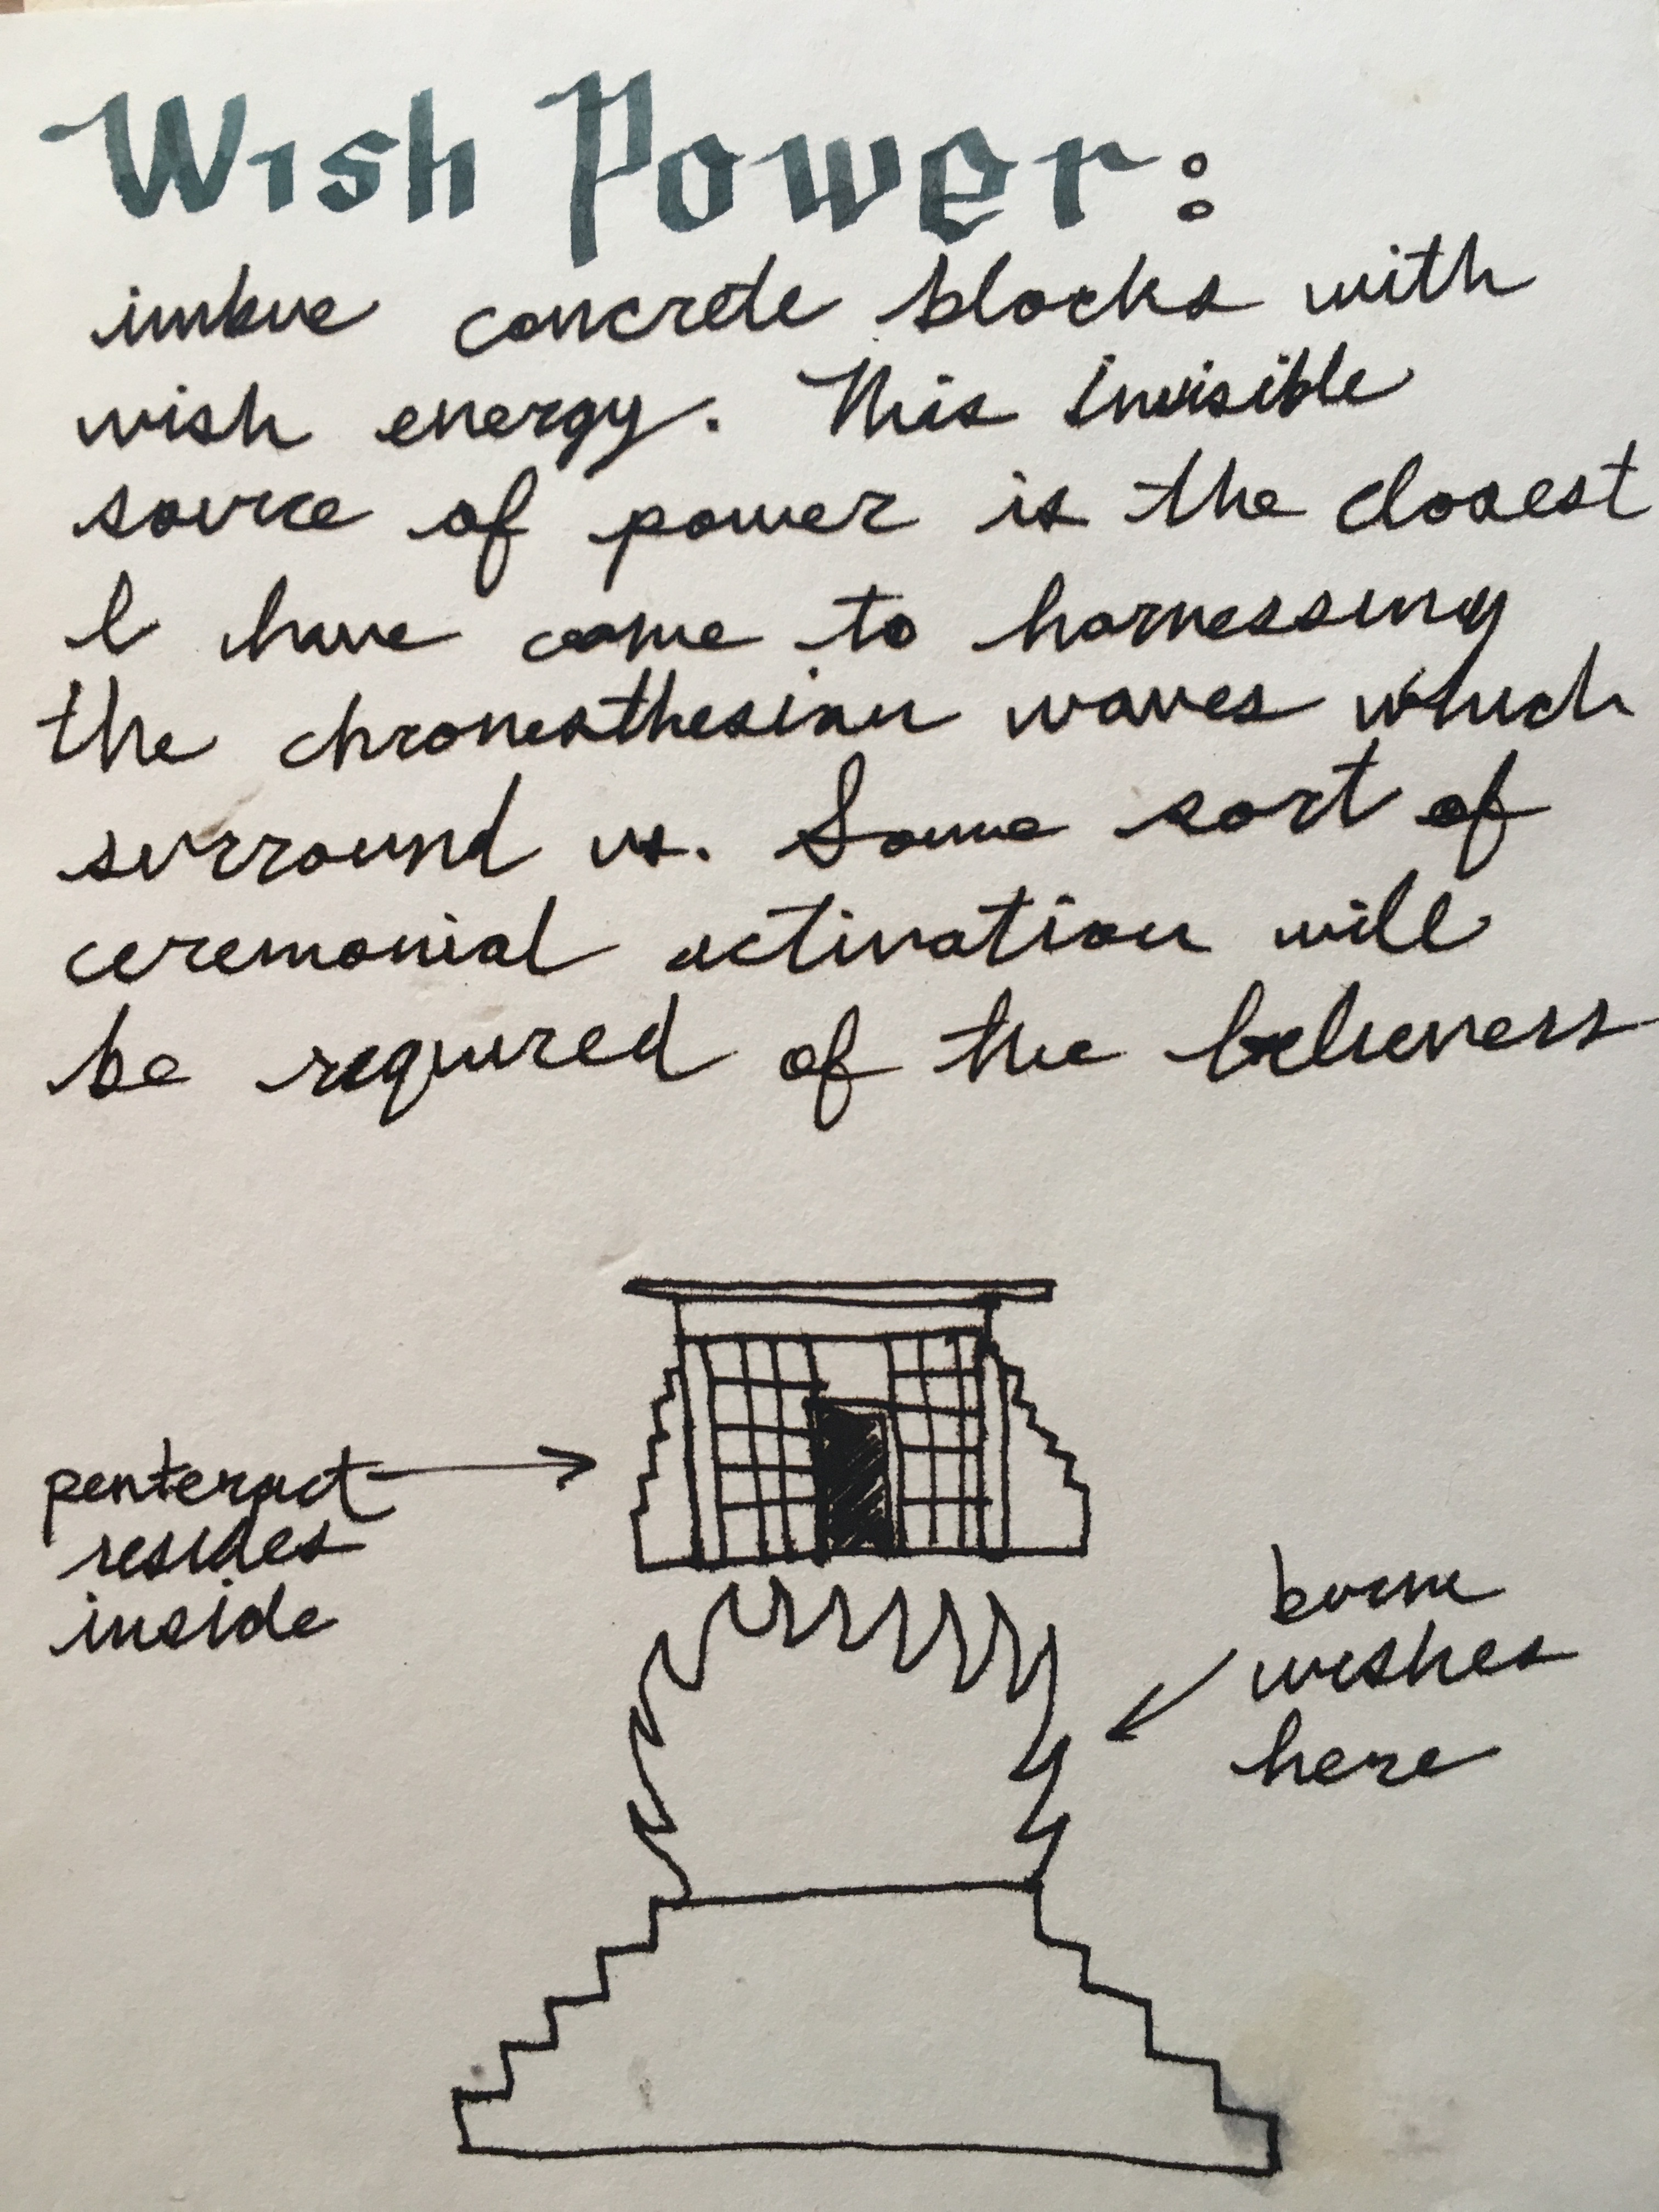 Wish Power:
imbue concrete blocks with
wish energy. This invisible
source of power is the closest
I have come to harnessing
the chronesthesian waves which
surround us. Some sort of
ceremonial activation will
be required of the believers
penteract
resides
inside
burn
wishes
here